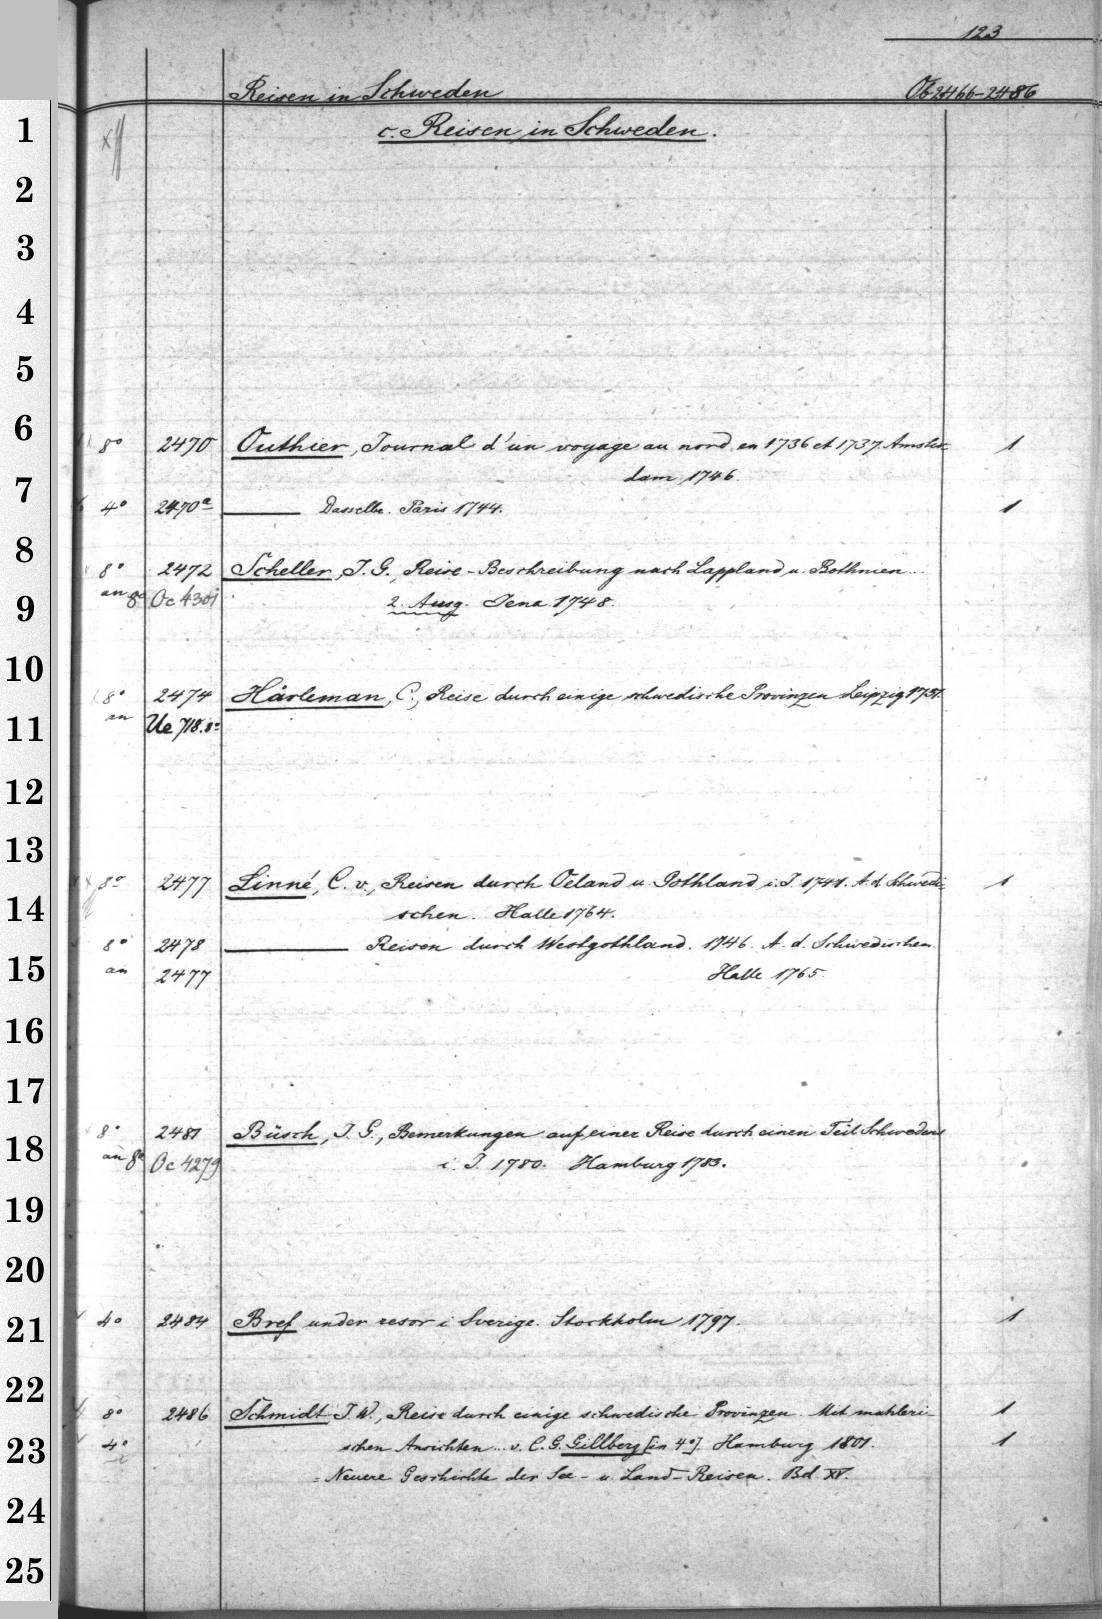 123
Reisen in Schweden Ob 2466-2486
1 c. Reisen in Schweden.
2
3
4
5
6 8° 2470 Outhier, Journal d'un voyage au nord en 1736 et 1737. Amster- 1
dam 1746.
7 4° 2470a Dasselbe. Paris 1744. 1
8 8° 2472 Scheller, J. G., Reise-Beschreibung nach Lappland u. Bothnien...
9 an 8° Oc 4301 2. Ausg. Jena 1748.
10 8° 2474 Hårleman, C., Reise durch einige schwedische Provinzen Leipzig 1751.
11 an Ue 718.8°
12
13 8° 2477 Linné, C. v., Reisen durch Oeland u. Gothland i. J. 1741. A. d. Schwedi- 1
14 schen. Halle 1764.
8° 2478 Reisen durch Westgothland. 1746. A. d. Schwedischen.
15 an 2477 Halle 1765.
16
17
18 8° 2481 Büsch, J. G., Bemerkungen auf einer Reise durch einen Teil Schwedens
an 8° Oc 4279 i. J. 1780. Hamburg 1783.
19
20
21 4° 2484 Bref under resor i Sverige. Stockholm 1797. 1
22 8° 2486 Schmidt J. W., Reise durch einige schwedische Provinzen. Mit mahleri- 1
23 4° schen Ansichten... v. C. G. Gillberg [in 4°]. Hamburg 1801. 1
= Neuere Geschichte der See- u. Land-Reisen. Bd. XV.
24
25